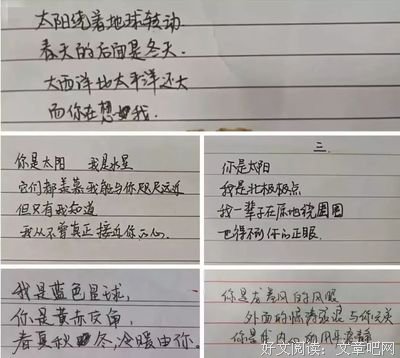 太阳绕着地球转动
春天的后面是冬天.
大西洋比太平洋还大
而你在想我.
你是太阳 我是水星
它们都羡慕我能与你咫尺远近
但只有我知道
我从不曾真正接近你的心.
三.
你是太阳
我是北极极点
我一辈子在原地绕圈圈
也得不到你的正眼.
我是蓝色星球,
你是黄赤交角,
春夏秋冬冷暖由你.
你是龙卷风的风眼
外面的惊涛骇浪与你无关
你是我
好文阅读：文章吧网